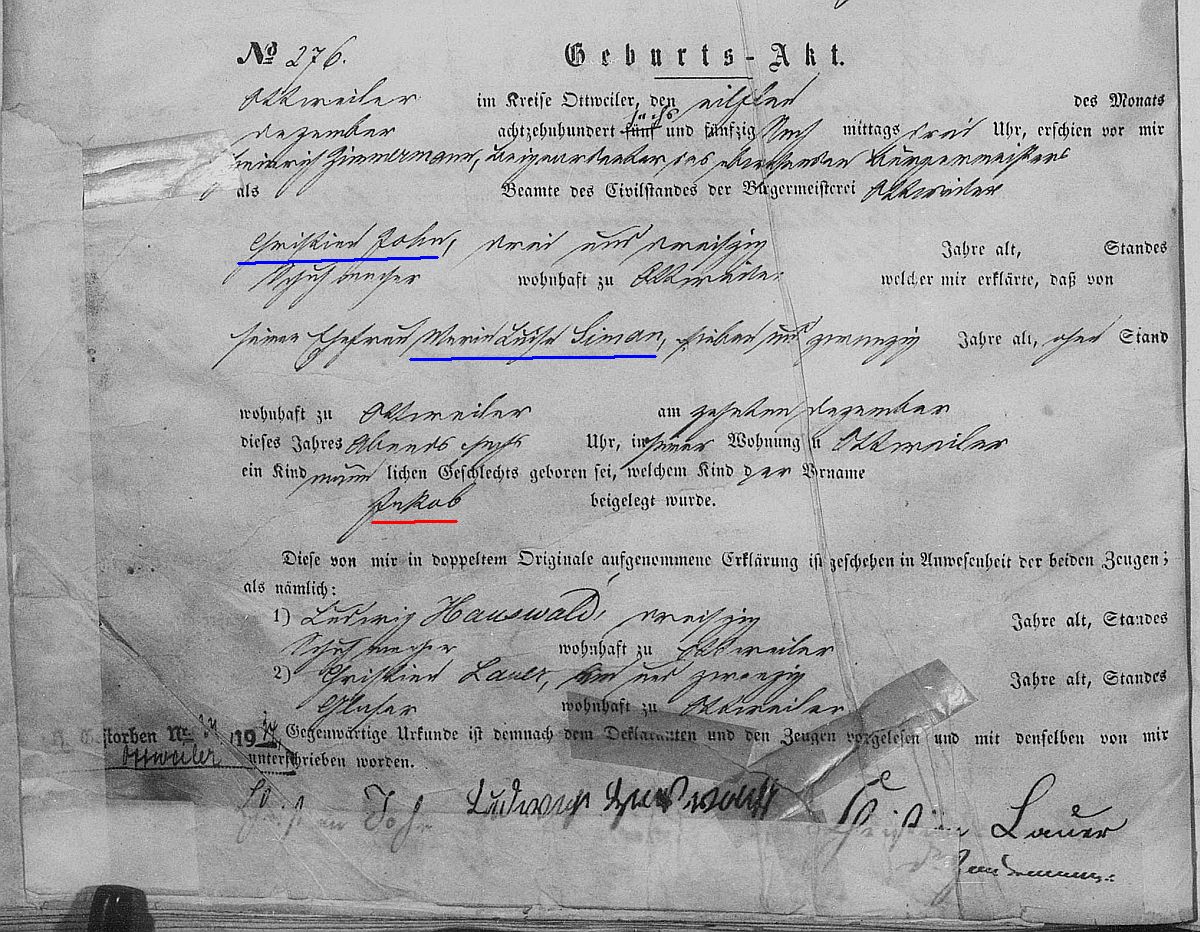 No 276. Geburts-Akt.
Ottweiler im Kreise Ottweiler, den eilften des Monats
Dezember achtzehnhundert fünf sechs und fünfzig Nach mittags drei Uhr, erschien vor mir
Heinrich Zimmermann, Beigeordneter des Bürgermeisters
als Beamte des Civilstandes der Bürgermeisterei Ottweiler
Christian John, drei und dreißig Jahre alt, Standes
Schuhmacher wohnhaft zu Ottweiler welcher mir erklärte, daß von
seiner Ehefrau Maria Luise Simon, sieben und zwanzig Jahre alt, ohne Stand
wohnhaft zu Ottweiler am zehnten Dezember
dieses Jahres Abends sechs Uhr, in seiner Wohnung u Ottweiler
ein Kind männ lichen Geschlechts geboren sei, welchem Kind der Vrname
Jakob beigelegt wurde.
Diese von mir in doppeltem Originale aufgenommene Erklärung ist geschehen in Anwesenheit der beiden Zeugen;
als nämlich:
1) Ludwig Hauswald, dreißig Jahre alt, Standes
Schuhmacher wohnhaft zu Ottweiler
2) Christian Lauer, und zwanzig Jahre alt, Standes
Glaser wohnhaft zu Ottweiler
Gegenwärtige Urkunde ist demnach dem Deklaranten und den Zeugen vorgelesen und mit denselben von mir
unterschrieben worden.
Gestorben Nr. 19
Ottweiler
Christian John Ludwig Hauswald Christian Lauer
Zimmermann